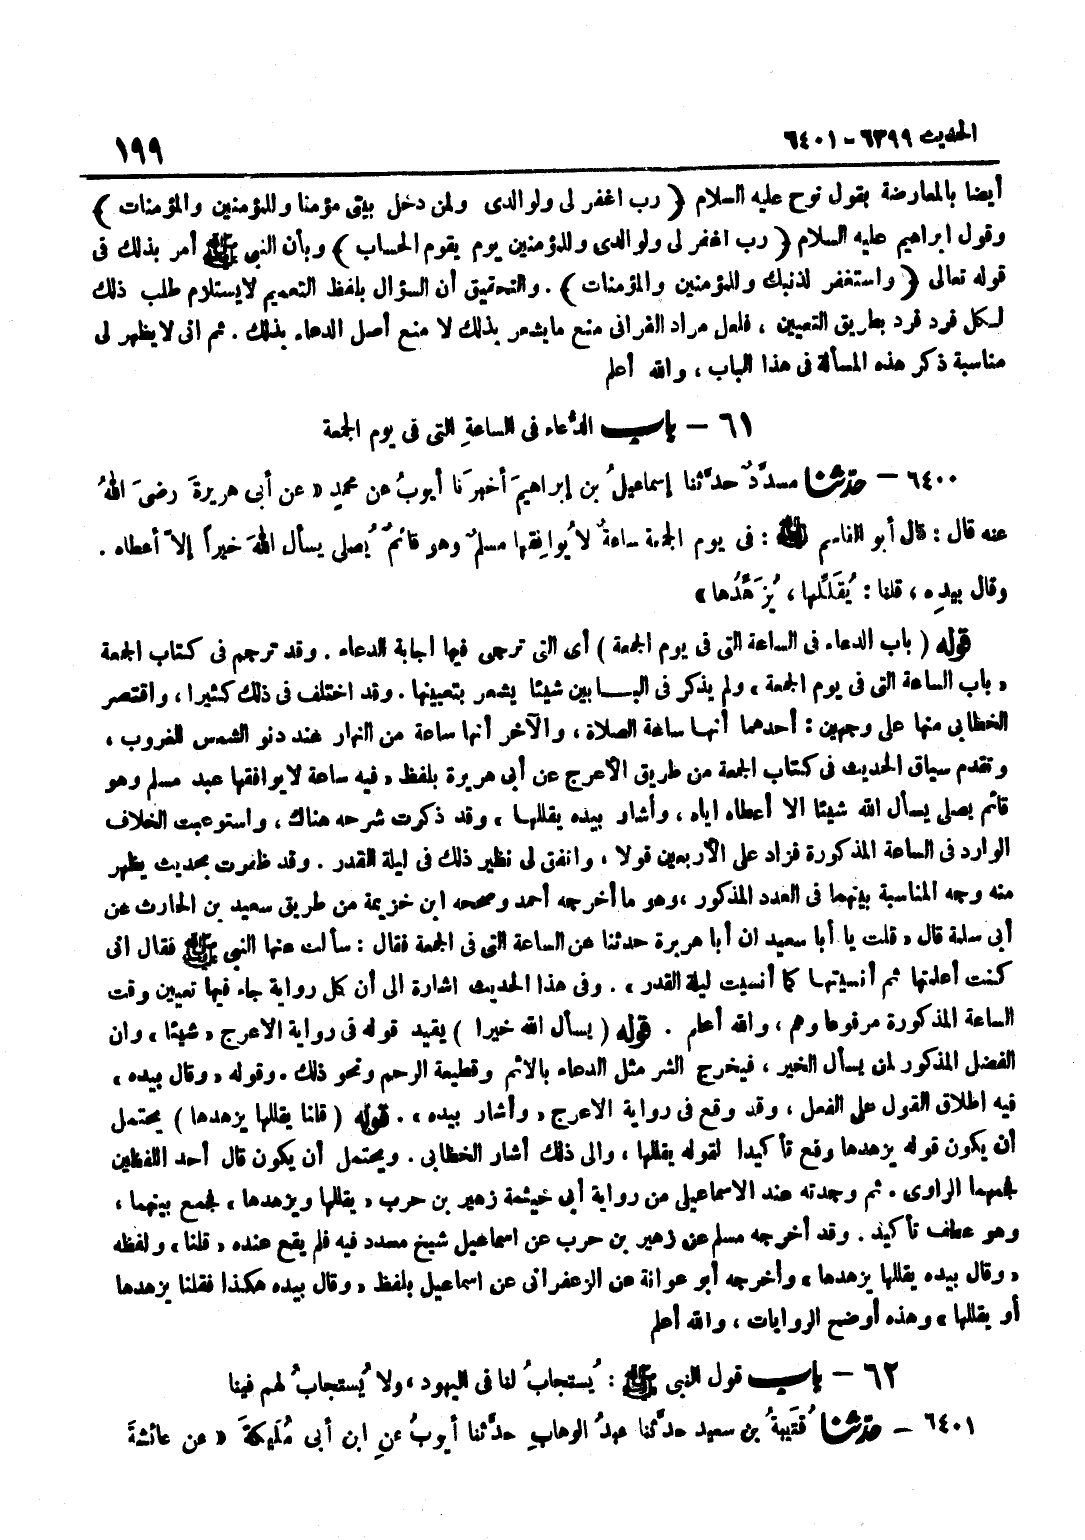 الحديث ٦٣٩٩ - ٦٤٠١
١٩٩
أيضا بالمعارضة بقول نوح عليه السلام ﴿ رب اغفر لى ولوالدى ولمن دخل بيتى مؤمنا وللمؤمنين والمؤمنات ﴾
وقول ابراهيم عليه السلام ﴿ رب اغفر لى ولوالدى وللمؤمنين يوم يقوم الحساب ﴾ وبأن النبي ﷺ أمر بذلك فى
قوله تعالى ﴿ واستغفر لذنبك وللمؤمنين والمؤمنات ﴾ . والتحقيق أن السؤال بلفظ التعميم لايستلزم طلب ذلك
لكل فرد فرد بطريق التعيين ، فلعل مراد القرافى منع مايشعر بذلك لا منع أصل الدعاء بذلك . ثم انى لايظهر لى
مناسبة ذكر هذه المسألة فى هذا الباب ، والله أعلم
٦١ - باب الدُّعاء فى الساعةِ التى فى يوم الجمعة
٦٤٠٠ - حدثنا مسدَّدٌ حدَّثنا إسماعيلُ بن إبراهيمَ أخبرَنا أيوبُ عن محمدٍ « عن أبى هريرةَ رضىَ اللهُ
عنه قال : قال أبو القاسم ﷺ : فى يوم الجمعة ساعةٌ لا يُوافِقها مسلمٌ وهو قائمٌ يُصلى يسأل اللهَ خيراً إلاّ أعطاه .
وقال بيدِه ، قلنا : يُقَلِّلها ، يُزَهِّدُها »
قوله ( باب الدعاء فى الساعة التى فى يوم الجمعة ) أى التى ترجى فيها اجابة الدعاء . وقد ترجم فى كتاب الجمعة
« باب الساعة التى فى يوم الجمعة » ولم يذكر فى البابين شيئا يشعر بتعيينها . وقد اختلف فى ذلك كثيرا ، واقتصر
الخطابى منها على وجهين : أحدهما أنها ساعة الصلاة ، والآخر أنها ساعة من النهار عند دنو الشمس للغروب ،
وتقدم سياق الحديث فى كتاب الجمعة من طريق الأعرج عن أبى هريرة بلفظ « فيه ساعة لايوافقها عبد مسلم وهو
قائم يصلى يسأل الله شيئا الا أعطاه اياه ، وأشار بيده يقللها » وقد ذكرت شرحه هناك ، واستوعبت الخلاف
الوارد فى الساعة المذكورة فزاد على الأربعين قولا ، واتفق لى نظير ذلك فى ليلة القدر . وقد ظفرت بحديث يظهر
منه وجه المناسبة بينهما فى العدد المذكور ، وهو ما أخرجه أحمد وصححه ابن خزيمة من طريق سعيد بن الحارث عن
أبى سلمة قال « قلت يا أبا سعيد ان أبا هريرة حدثنا عن الساعة التى فى الجمعة فقال : سألت عنها النبى ﷺ فقال انى
كنت أعلمتها ثم أنسيتها كما أنسيت ليلة القدر » . وفى هذا الحديث اشارة الى أن كل رواية جاء فيها تعيين وقت
الساعة المذكورة مرفوعا وهم ، والله أعلم . قوله ( يسأل الله خيرا ) يقيد قوله فى رواية الاعرج « شيئا » وان
الفضل المذكور لمن يسأل الخير ، فيخرج الشر مثل الدعاء بالاثم وقطيعة الرحم ونحو ذلك . وقوله « وقال بيده »
فيه اطلاق القول على الفعل ، وقد وقع فى رواية الاعرج « وأشار بيده » . قوله ( قلنا يقللها يزهدها ) يحتمل
أن يكون قوله يزهدها وقع تأكيدا لقوله يقللها ، والى ذلك أشار الخطابى . ويحتمل أن يكون قال أحد اللفظين
فجمعهما الراوى . ثم وجدته عند الاسماعيلى من رواية أبى خيثمة زهير بن حرب « يقللها ويزهدها » فجمع بينهما ،
وهو عطف تأكيد . وقد أخرجه مسلم عن زهير بن حرب عن اسماعيل شيخ مسدد فيه فلم يقع عنده « قلنا » ولفظه
« وقال بيده يقللها يزهدها » وأخرجه أبو عوانة عن الزعفرانى عن اسماعيل بلفظ « وقال بيده هكذا فقلنا يزهدها
أو يقللها » وهذه أوضح الروايات ، والله أعلم
٦٢ - باب قول النبى ﷺ : يُستجابُ لنا فى اليهود ، ولا يُستجابُ لهم فينا
٦٤٠١ - حدثنا قُتَيبةُ بن سعيد حدَّثنا عبدُ الوهابِ حدَّثنا أيوبُ عنِ ابن أبى مُلَيكةَ « عن عائشةَ